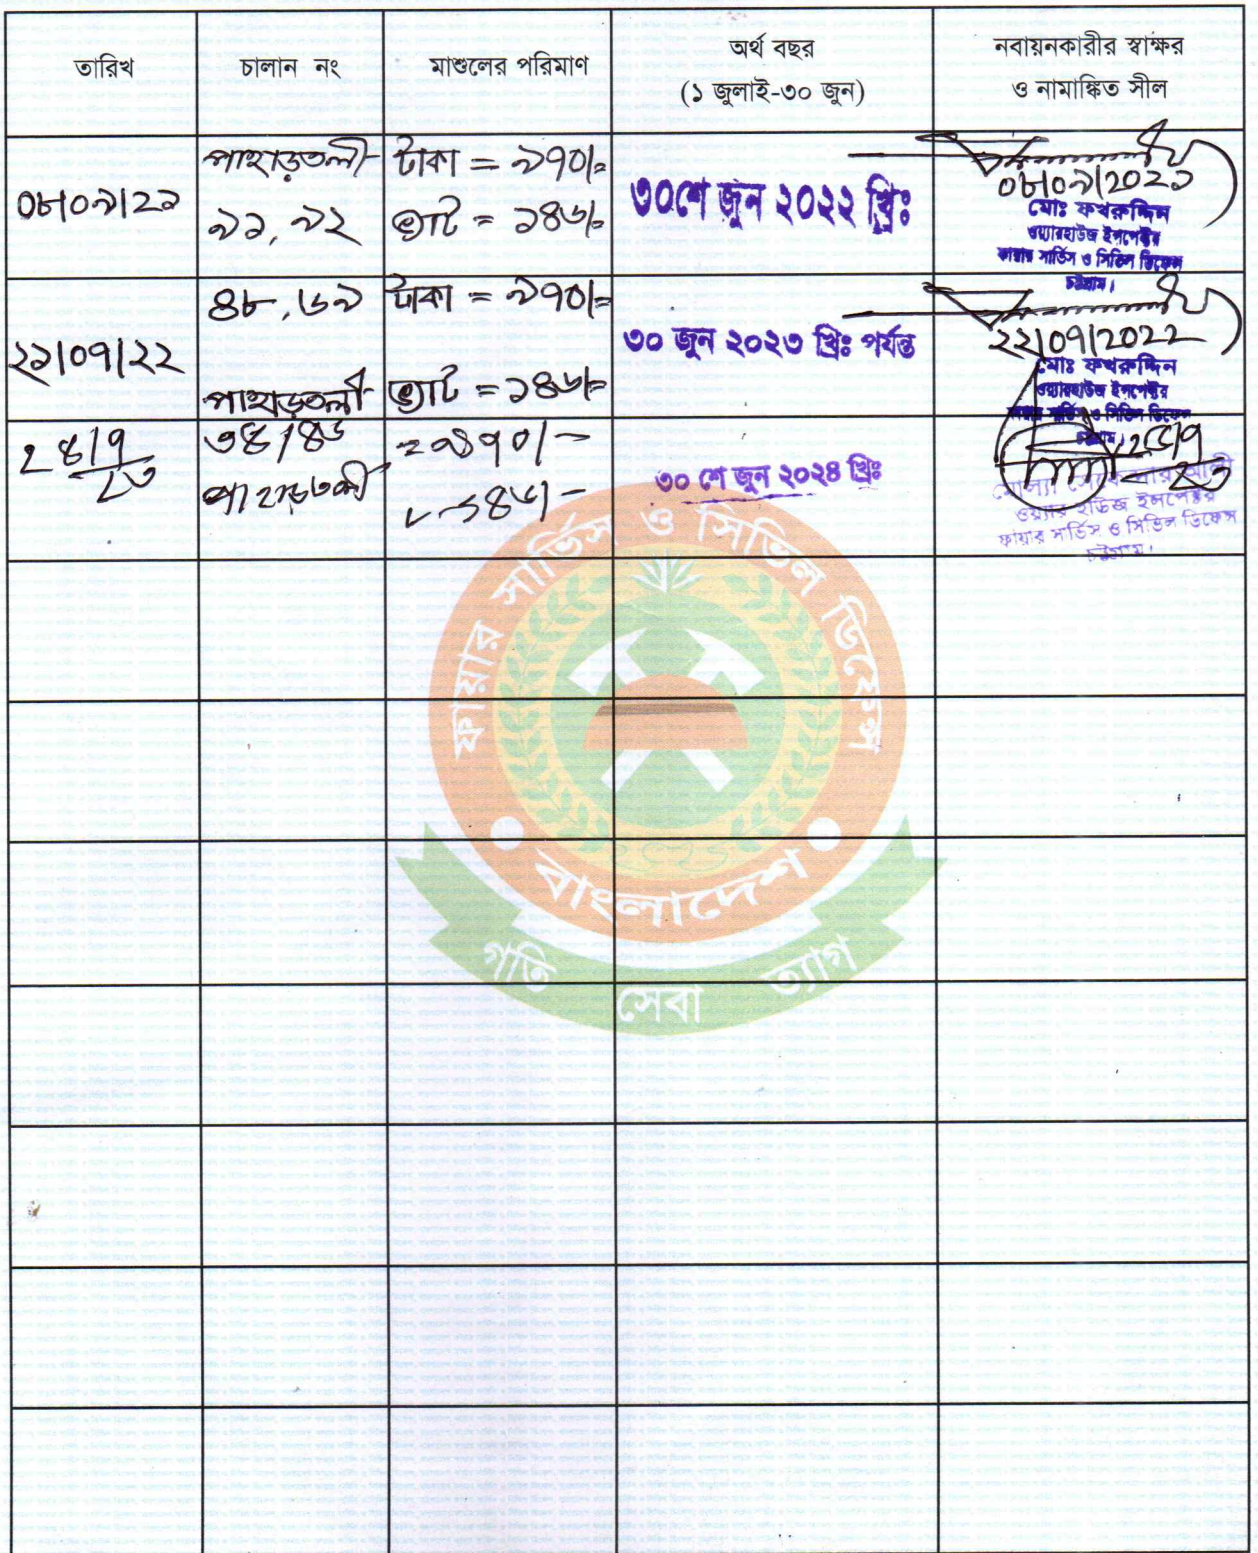 তারিখ
চালান নং
মাশুলের পরিমাণ
অর্থ বছর
(১ জুলাই-৩০ জুন)
নবায়নকারীর স্বাক্ষর
ও নামাঙ্কিত সীল
০৮|০৯|২১
পাহাড়তলী
৯১, ৯২
টাকা = ৯৭০/=
ভ্যাট = ১৪৬/=
৩০শে জুন ২০২২ খ্রিঃ
০৮|০৯|2021
মোঃ ফখরুদ্দিন
ওয়্যারহাউজ ইন্সপেক্টর
ফায়ার সার্ভিস ও সিভিল ডিফেন্স
চট্টগ্রাম।
২১|০৭|২২
৪৮, ৬৯
পাহাড়তলী
টাকা = ৯৭০/=
ভ্যাট = ১৪৬/=
৩০ জুন ২০২৩ খ্রিঃ পর্যন্ত
২২|০৭|2022
মোঃ ফখরুদ্দিন
ওয়্যারহাউজ ইন্সপেক্টর
ফায়ার সার্ভিস ও সিভিল ডিফেন্স
চট্টগ্রাম।
পাহাড়তলী
১৪৬/-
৩০ শে জুন ২০২৪ খ্রিঃ
ওয়্যার হাউজ ইন্সপেক্টর
ফায়ার সার্ভিস ও সিভিল ডিফেন্স
চট্টগ্রাম।
ফায়ার সার্ভিস ও সিভিল ডিফেন্স
বাংলাদেশ
গতি সেবা ত্যাগ